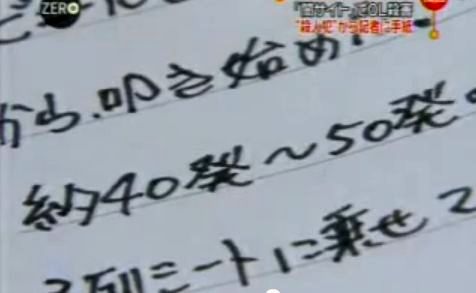 ZERO
「闇サイト」でOL殺害
“殺人犯”から記者に手紙
から、叩き始め
約40発～50発。
列シートに乗せて